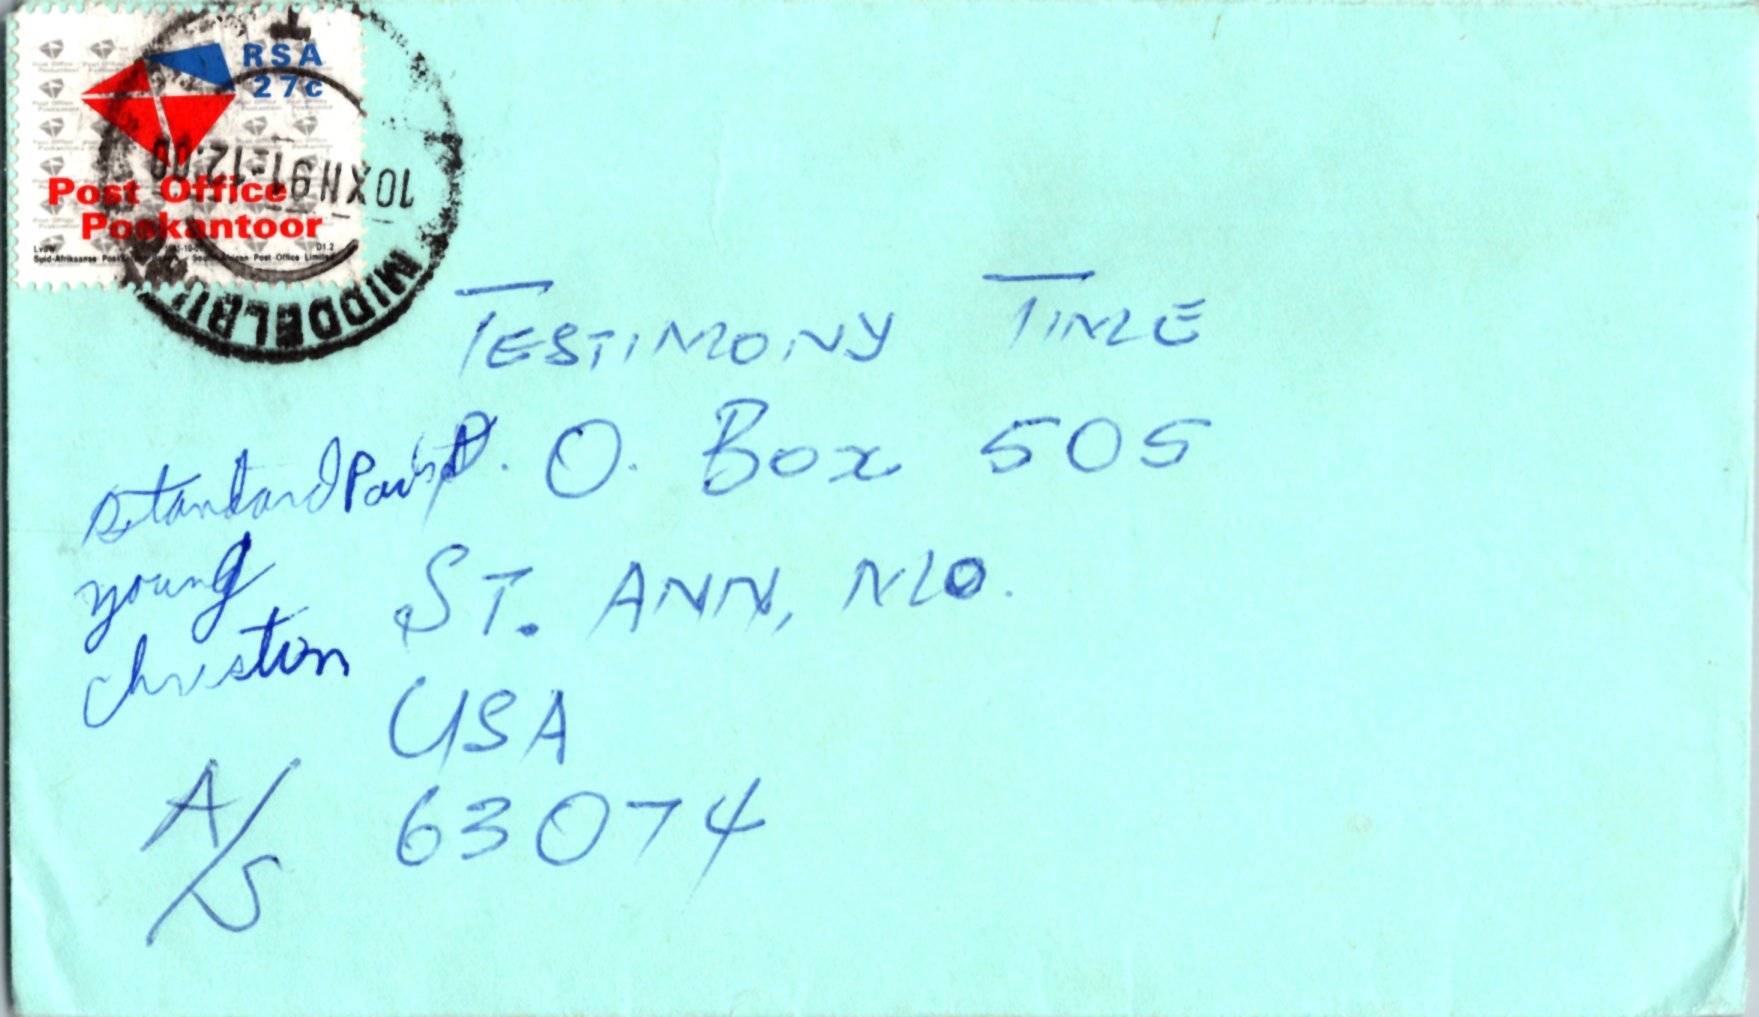 RSA
27c
Post Office
Poskantoor
D1.2
Suid-Afrikaanse South African Post Office Limited
10 XII 91-12.00
MIDDELBU
TESTIMONY TIME
P. O. Box 505
ST. ANN, MO.
USA
63074
Standard
young
christian
A/S